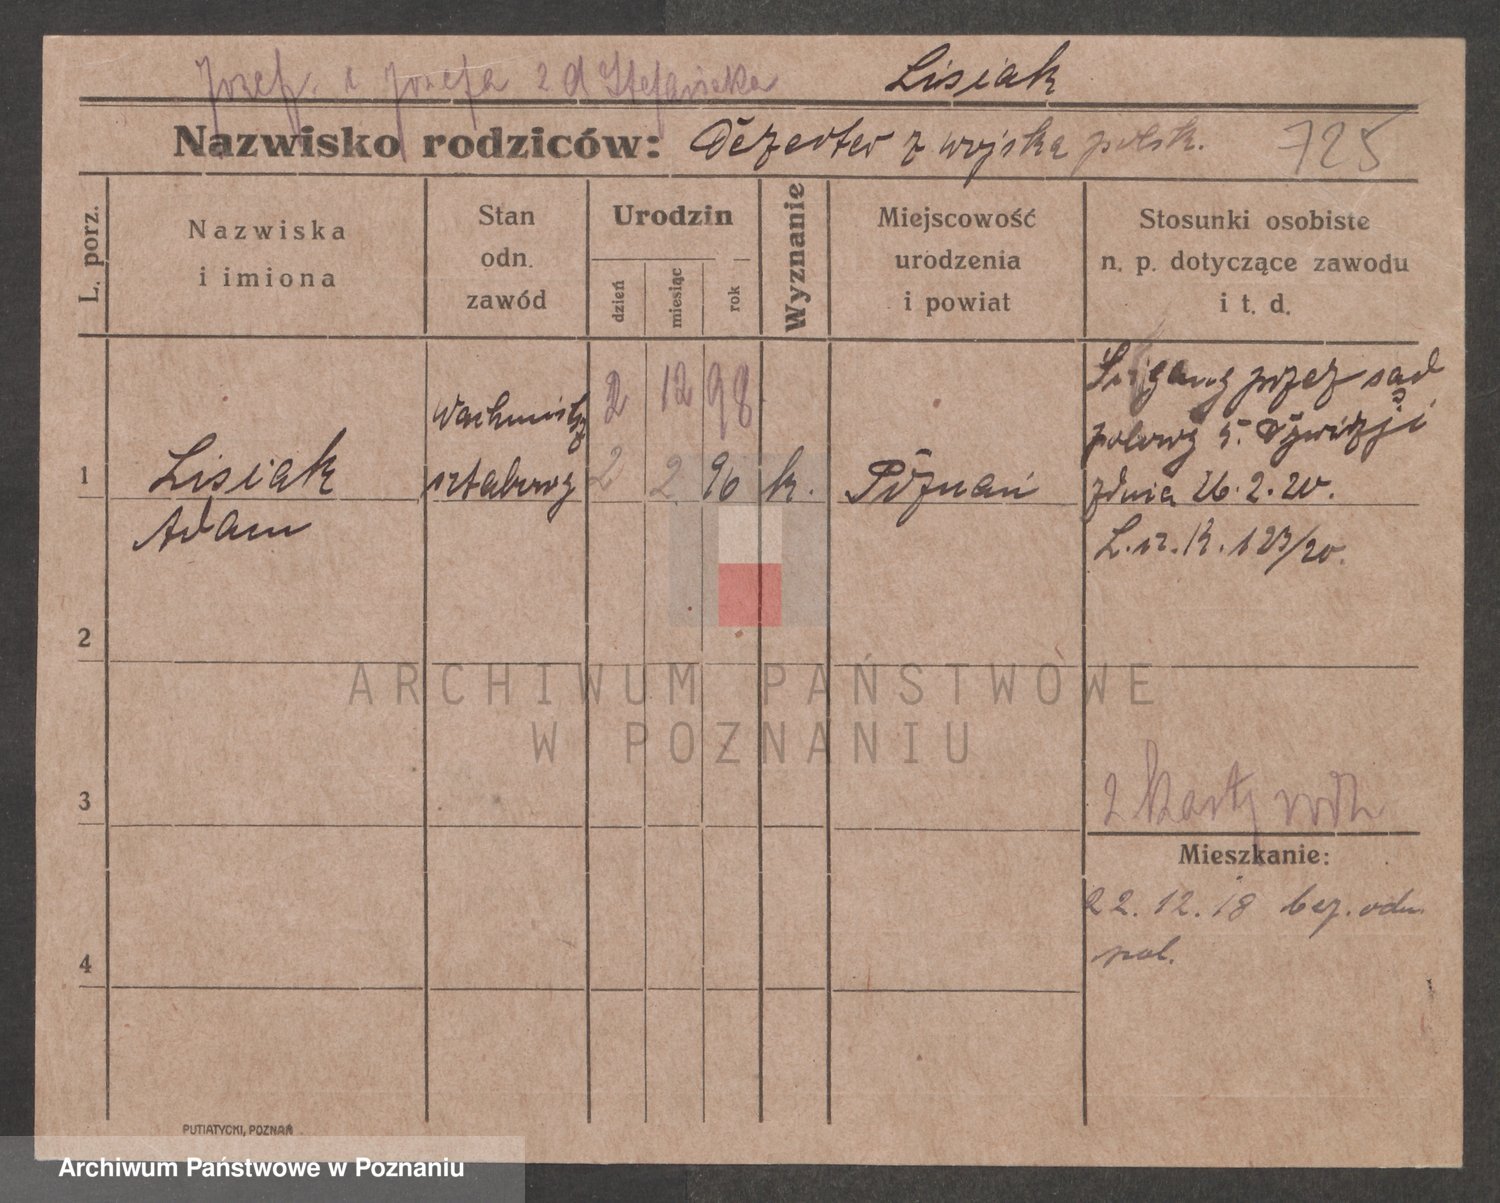 Józef i Józefa z d Stefańska
Lisiak
Nazwisko rodziców: Dezerter z wojska polsk. 725
L. porz.
Nazwiska
i imiona
Stan
odn.
zawód
Urodzin
dzień
miesiąc
rok
Wyznanie
Miejscowość
urodzenia
i powiat
Stosunki osobiste
n. p. dotyczące zawodu
i t. d.
1
Lisiak
Adam
Wachmistrz
sztabowy
2 12 98
2 2 96
k.
Poznań
Ścigany przez sąd
polowy 5. Dywizji
z dnia 26.2.20.
L. sz. K. 123/20.
2
3
2 karty
4
Mieszkanie:
22.12.18 bez. odm.
pol.
PUTIATYCKI, POZNAŃ
ARCHIWUM PAŃSTWOWE
W POZNANIU
Archiwum Państwowe w Poznaniu